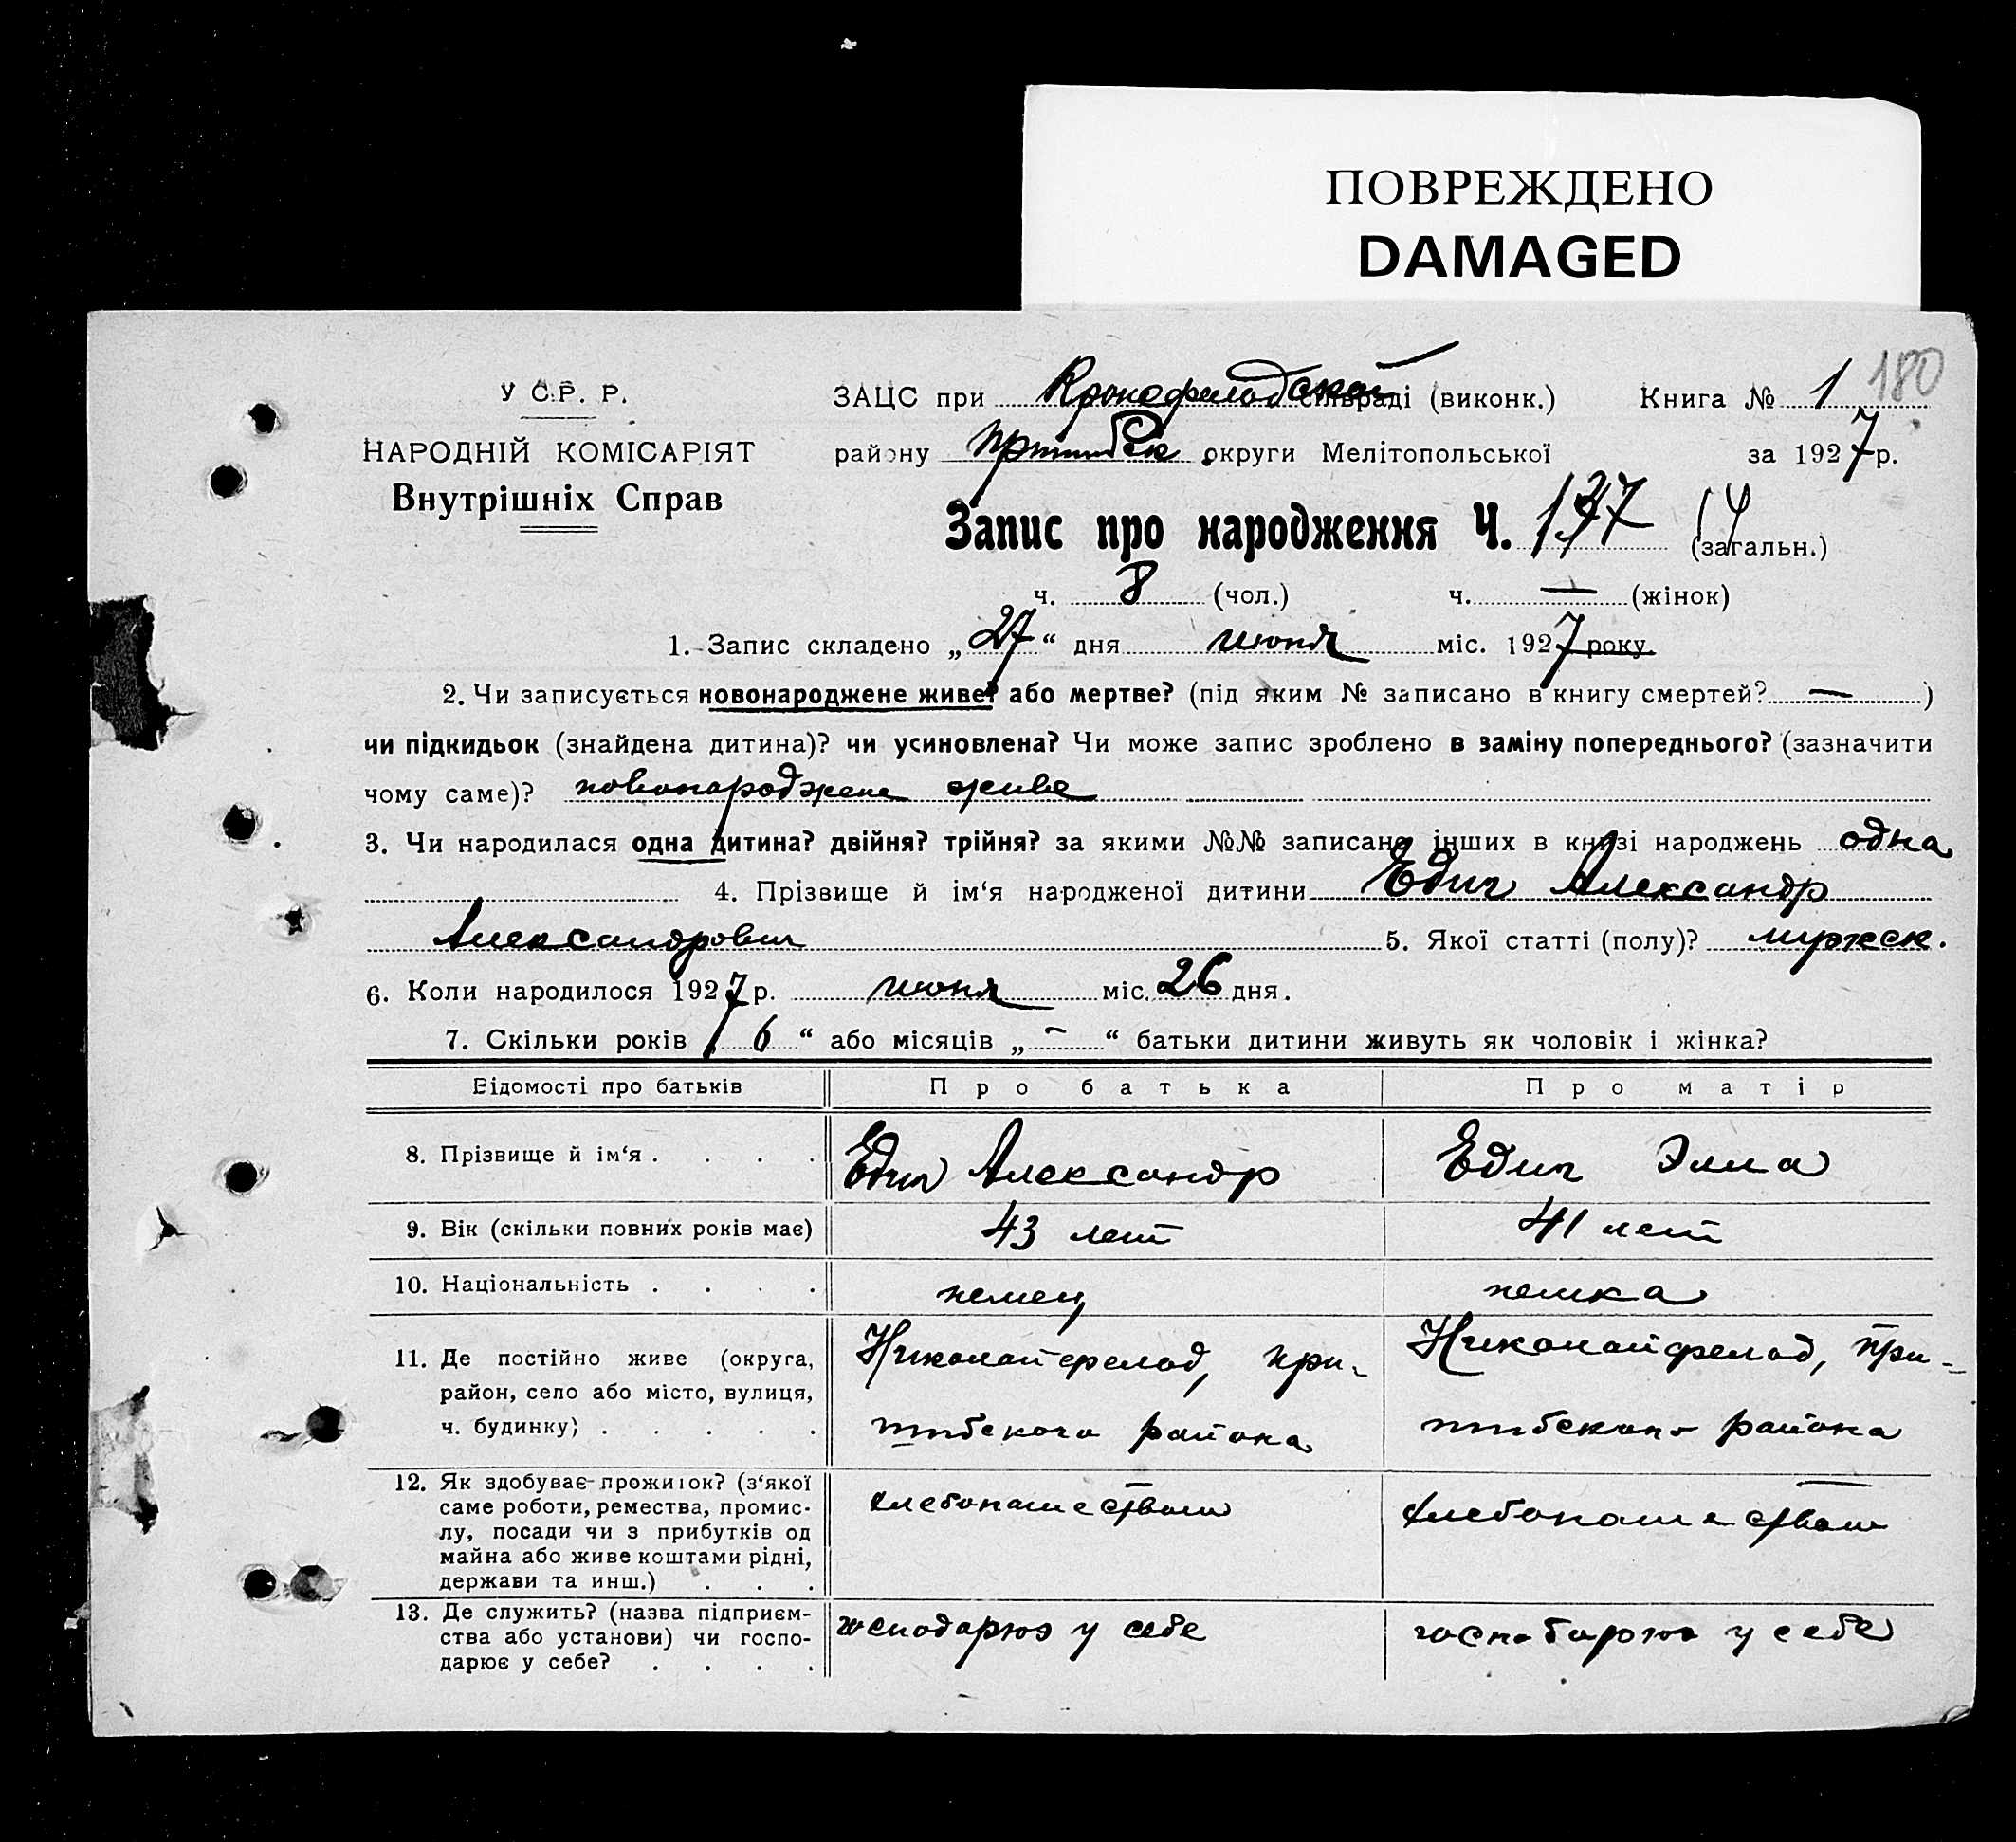 ПОВРЕЖДЕНО
DAMAGED
180
У С.Р. Р. ЗАЦС при Кронсфельдской сільраді (виконк.) Книга № 1
НАРОДНІЙ КОМІСАРІЯТ району Пришибск округи Мелітопольської за 1927 р.
Внутрішніх Справ
Запис про народження Ч. 14 (загальн.)
ч. 8 (чол.) ч. — (жінок)
1. Запис складено „27“ дня июня міс. 1927 року.
2. Чи записується новонароджене живе? або мертве? (під яким № записано в книгу смертей? — )
чи підкидьок (знайдена дитина)? чи усиновлена? Чи може запис зроблено в заміну попереднього? (зазначити
чому саме)? новонароджене живе
3. Чи народилася одна дитина? двійня? трійня? за якими №№ записано інших в книзі народжень одна
4. Прізвище й ім‘я народженої дитини Едиг Александр
Александрович 5. Якої статті (полу)? мужеск.
6. Коли народилося 1927 р. июня міс. 26 дня.
7. Скільки років „ 6 “ або місяців „ – “ батьки дитини живуть як чоловік і жінка?
Відомості про батьків Про батька Про матір
8. Прізвище й ім‘я . . . . Едиг Александр Едиг Элла
9. Вік (скільки повних років має) 43 лет 41 лет
10. Національність . . . . немец немка
11. Де постійно живе (округа, Николайфельд, При- Николайфельд, При-
район, село або місто, вулиця,
ч. будинку) . . . . . шибского района шибского района
12. Як здобуває прожиток? (з‘якої
саме роботи, ремества, промис- хлебопашеством хлебопашеством
лу, посади чи з прибутків од
майна або живе коштами рідні,
держави та инш.) . . .
13. Де служить? (назва підприєм- господарює у себе господарює у себе
ства або установи) чи госпо-
дарює у себе? . . . .